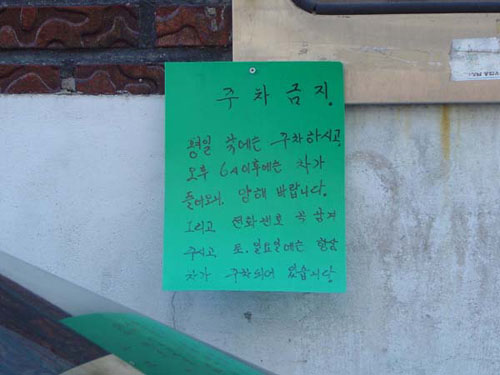 주차금지.
평일 낮에는 주차하시고,
오후 6시이후에는 차가
들어오니. 양해 바랍니다.
그리고 전화번호 꼭 남겨
주시고 토.일요일에는 항상
차가 주차되어 있습니다